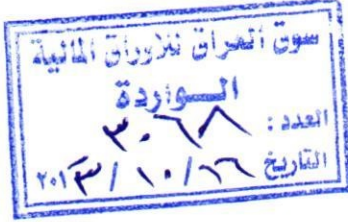 سوق العراق للاوراق المالية
الـواردة
العدد : ٣٠٦٨
التاريخ ٢٠١٣/١٠/٢٦